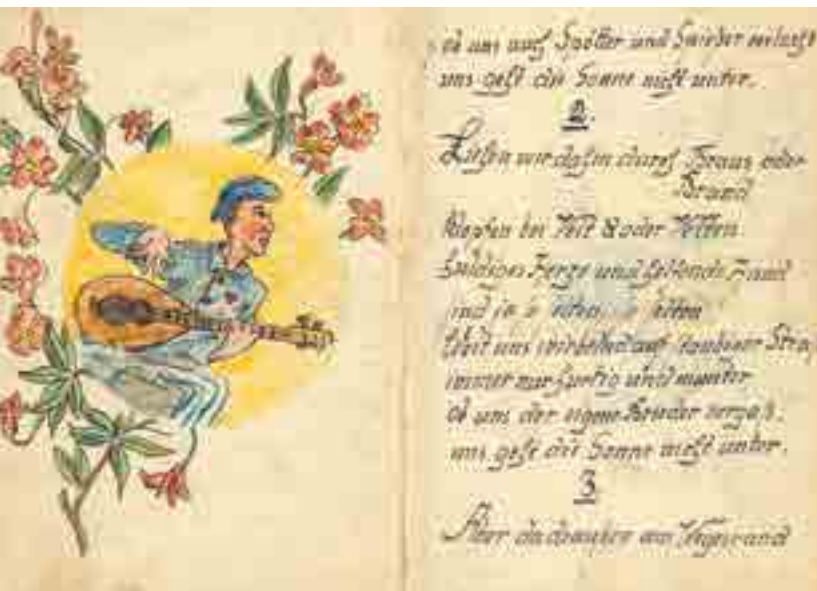 ob uns auch Spötter und Speier verlacht
uns geht die Sonne nicht unter.
2.
Ziehen wir dahin durch Braus oder
Brand
klopfen bei Veit & oder Velten.
huldiges Herze und helfende Hand
sind ja
uns wirbelnd auf staubiger
immer nur hurtig und munter
ob uns der eigene Bruder vergaß.
uns geht die Sonne nicht unter.
3
Aber da draußen am Wegesrand